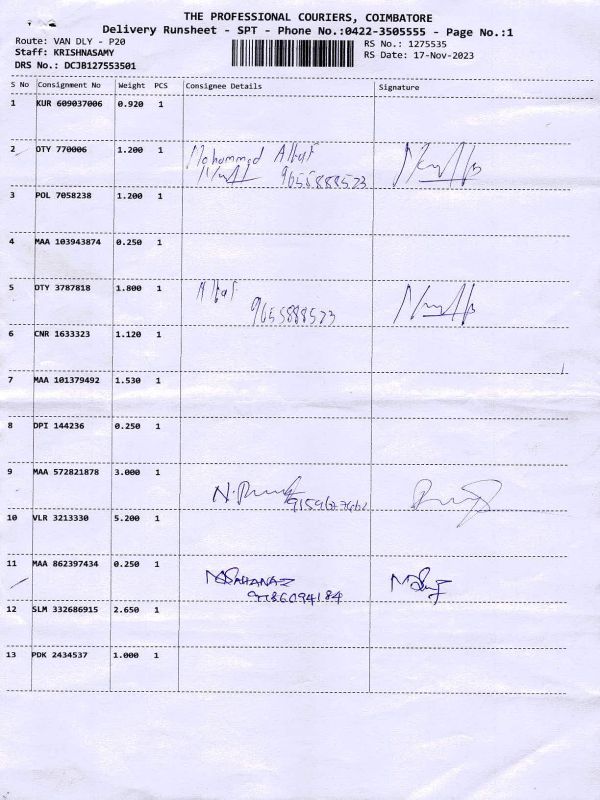 THE PROFESSIONAL COURIERS, COIMBATORE
Delivery Runsheet - SPT - Phone No.:0422-3505555 - Page No.:1
Route: VAN DLY - P20 RS No.: 1275535
Staff: KRISHNASAMY RS Date: 17-Nov-2023
DRS No.: DCJB127553501
S No Consignment No Weight PCS Consignee Details Signature
1 KUR 609037006 0.920 1
2 OTY 770006 1.200 1 Mohammed Altaf
9655888523
3 POL 7058238 1.200 1
4 MAA 103943874 0.250 1
5 OTY 3787818 1.800 1 Altaf
9655888523
6 CNR 1633323 1.120 1
7 MAA 101379492 1.530 1
8 DPI 144236 0.250 1
9 MAA 572821878 3.000 1
10 VLR 3213330 5.200 1
11 MAA 862397434 0.250 1
12 SLM 332686915 2.650 1
13 PDK 2434537 1.000 1